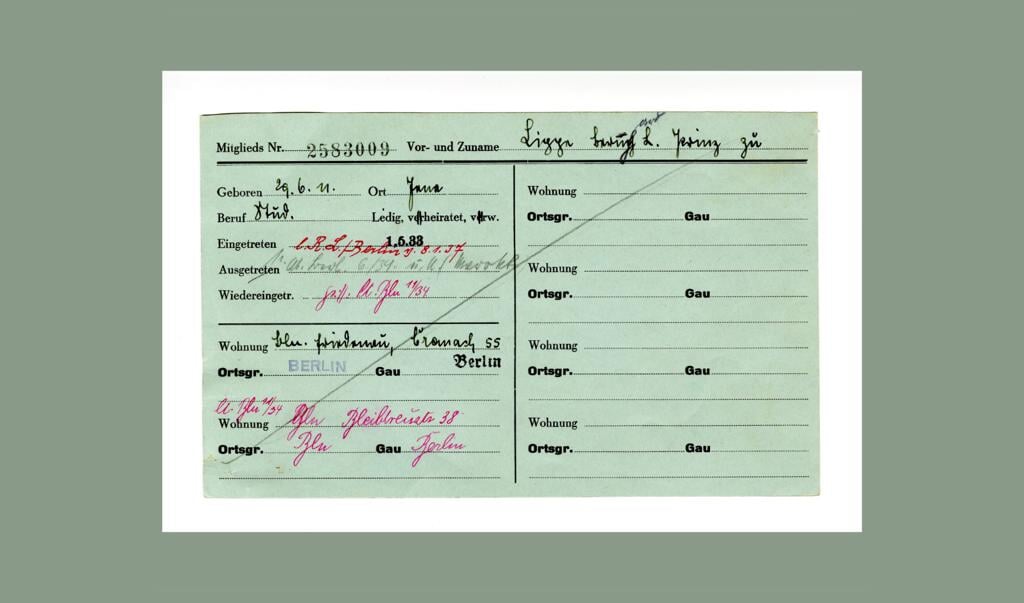 Mitglieds Nr. 2583009 Vor- und Zuname Lippe Bernhard L. Prinz zu
Geboren 29.6.11. Ort Jena
Beruf Stud. Ledig, verheiratet, verw.
Eingetreten 1.5.33
b.R.L./Berlin v. 8.1.37
Ausgetreten
Wiedereingetr. lt. Bln 11/34
Wohnung Bln. Friedenau, Cranach 55
Ortsgr. BERLIN Gau Berlin
lt. Bln 11/34
Wohnung Bln Bleibtreustr 38
Ortsgr. Bln Gau Berlin
Wohnung
Ortsgr. Gau
Wohnung
Ortsgr. Gau
Wohnung
Ortsgr. Gau
Wohnung
Ortsgr. Gau